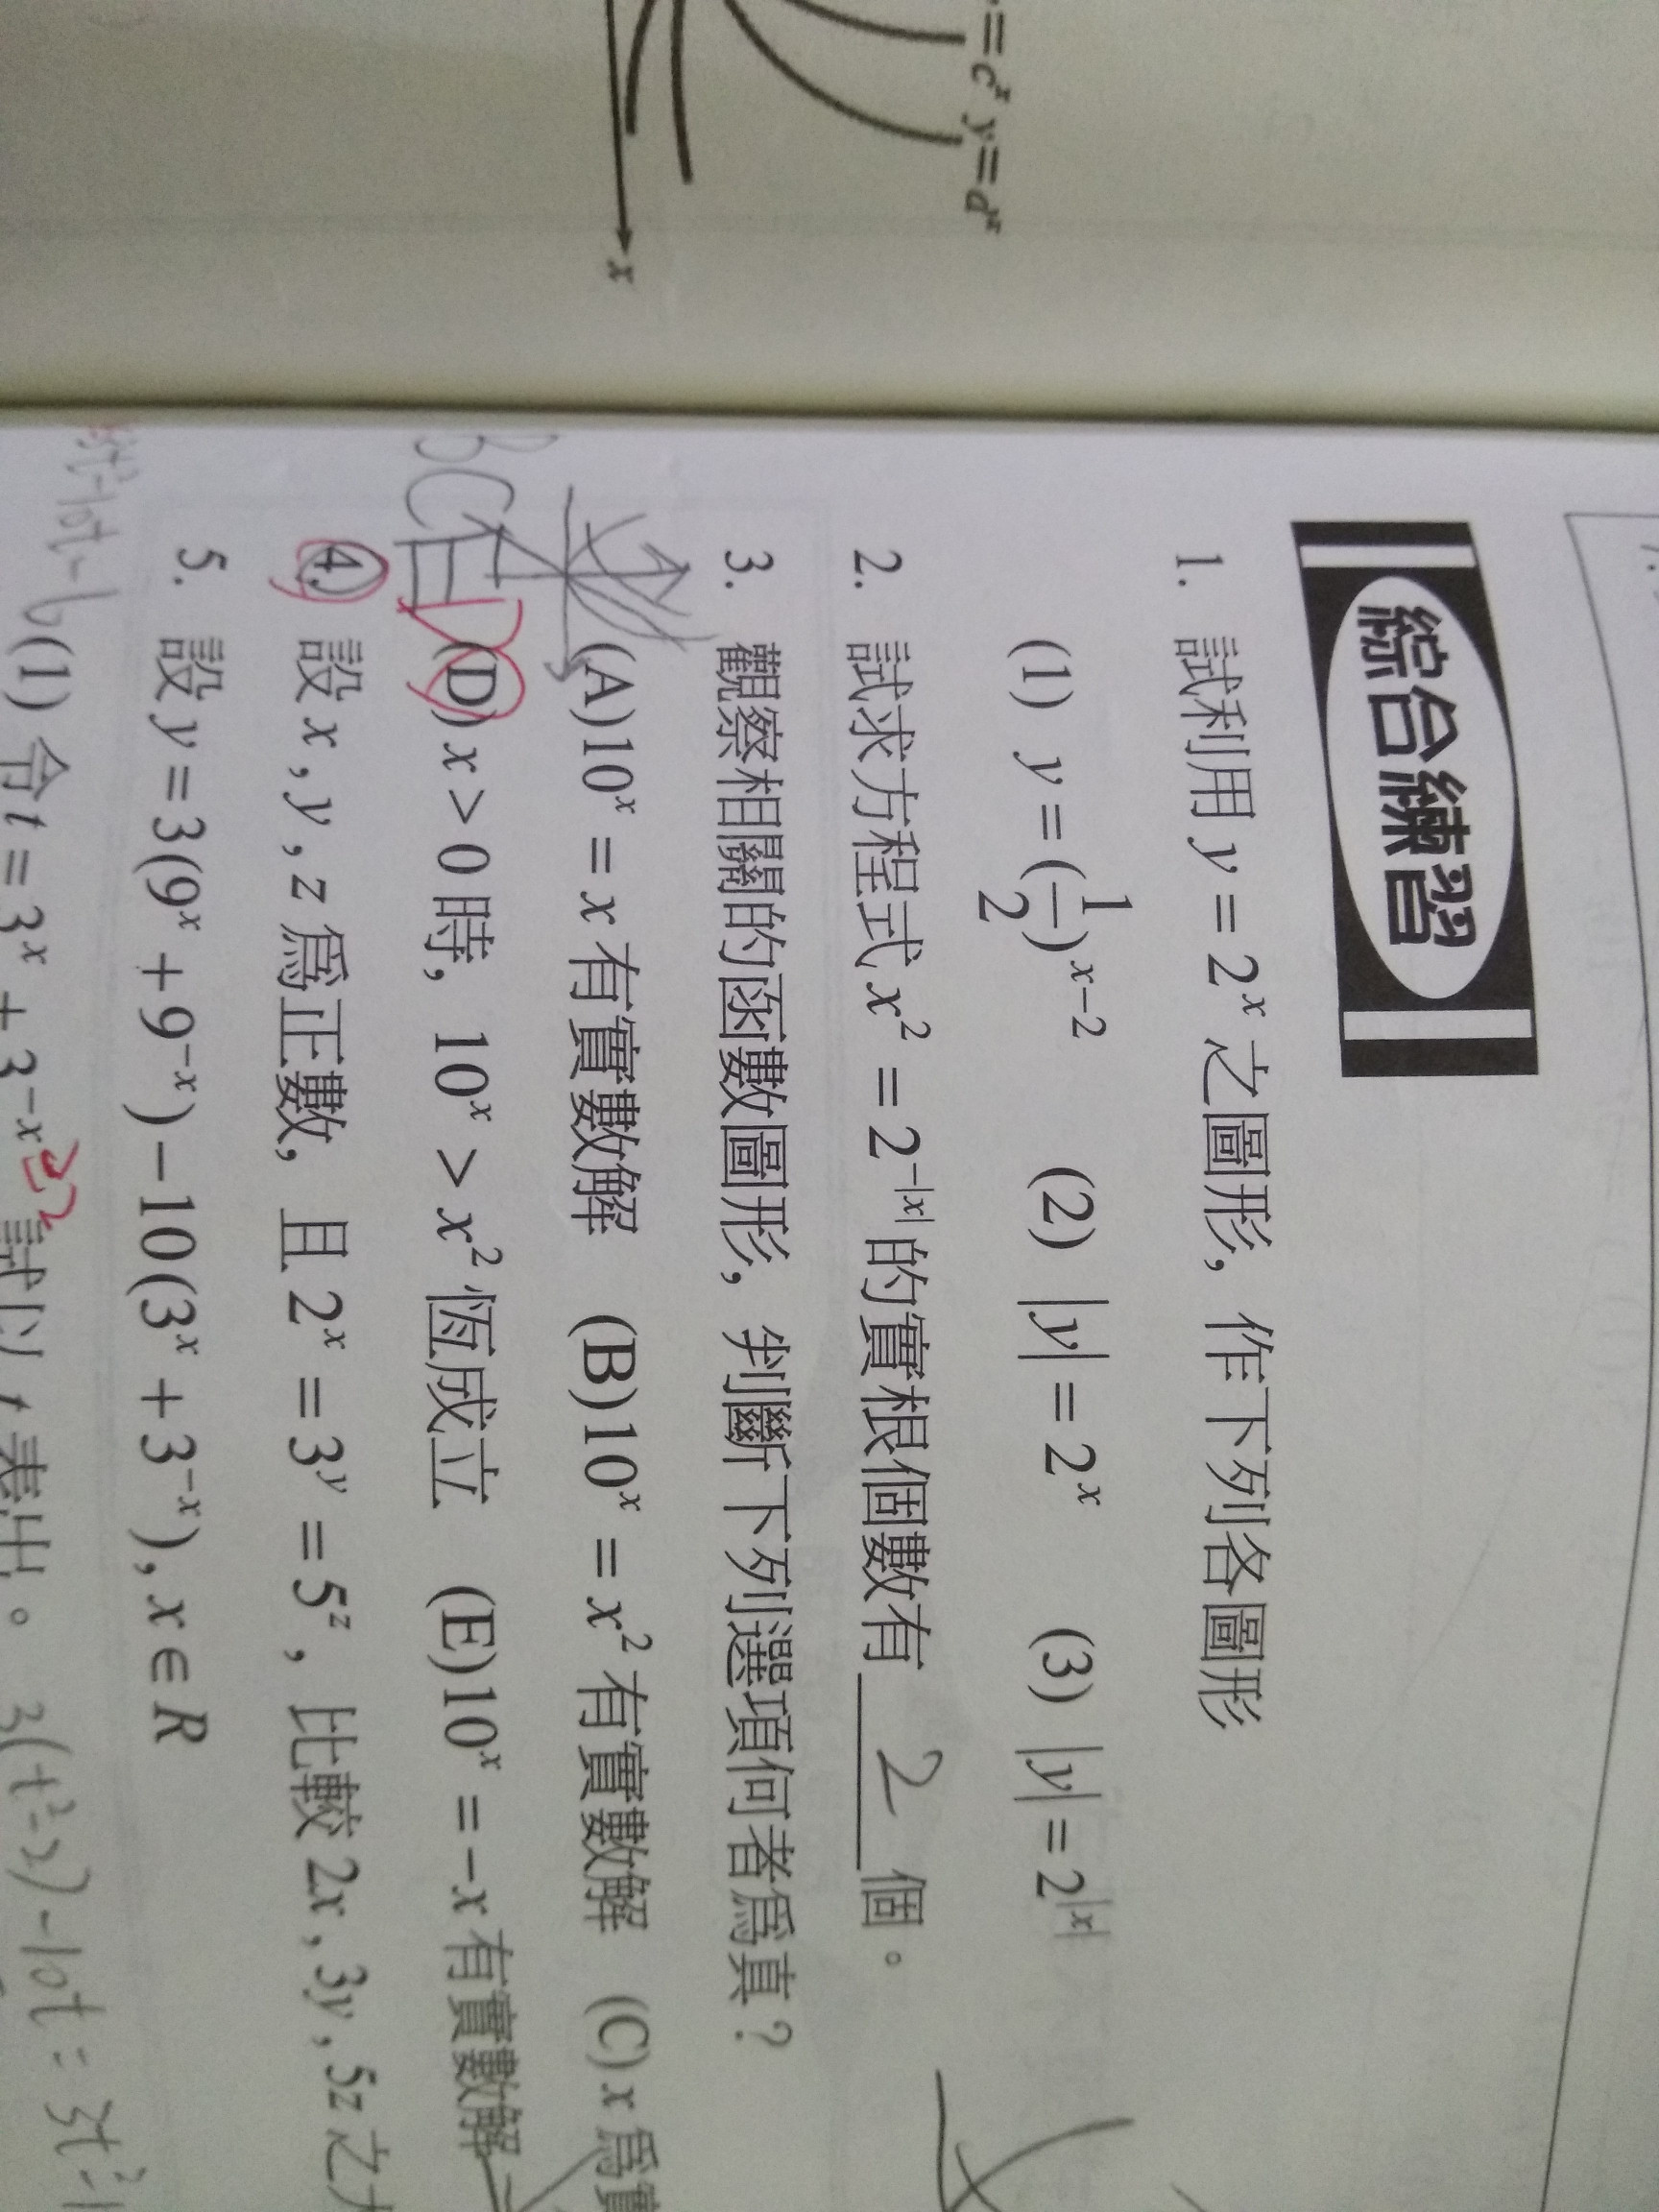 = cˣ y = dˣ
x
綜合練習
1. 試利用 y = 2ˣ 之圖形，作下列各圖形
(1) y = (1/2)ˣ⁻² (2) |y| = 2ˣ (3) |y| = 2^|x|
2. 試求方程式 x² = 2^(-|x|) 的實根個數有 2 個。
3. 觀察相關的函數圖形，判斷下列選項何者為真？
(A)10ˣ = x 有實數解 (B)10ˣ = x² 有實數解 (C) x 為實
BC
(D) x > 0 時，10ˣ > x² 恆成立 (E)10ˣ = -x 有實數解
4. 設 x , y , z 為正數，且 2ˣ = 3ʸ = 5ᶻ，比較 2x , 3y , 5z 之大
5. 設 y = 3(9ˣ + 9⁻ˣ) - 10(3ˣ + 3⁻ˣ) , x ∈ R
(1) 令 t = 3ˣ + 3⁻ˣ 試以 t 表出。 3(t²-2) - 10t = 3t²-